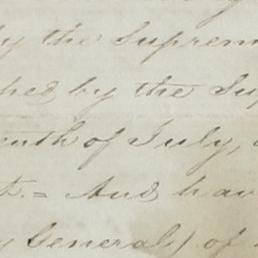 by the Suprem
hed by the Sup
enth of July,
t. = And hav
y General) of